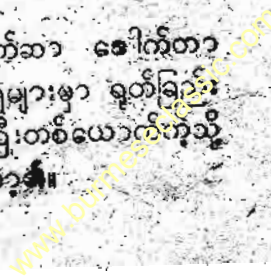 က်ဆာ ဒေါက်တာ
များမှာ ရုတ်ခြည်း
ြီးတစ်ယောက်ကဲ့သို့
www.burmeseclassic.com